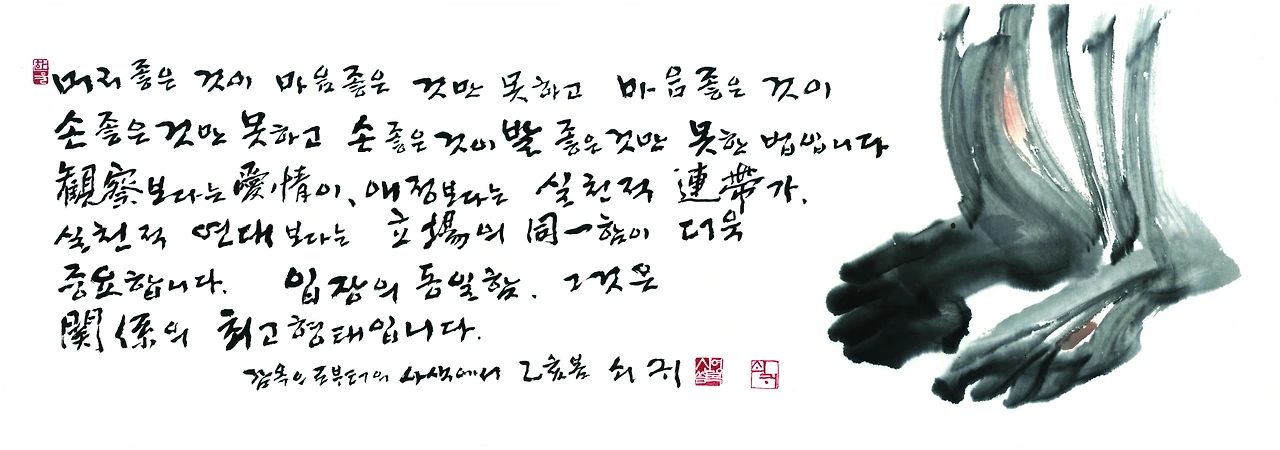 머리좋은 것이 마음좋은 것만 못하고 마음좋은 것이
손좋은것만 못하고 손좋은것이 발좋은것만 못한 법입니다
観察보다는 愛情이, 애정보다는 실천적 連帶가.
실천적 연대보다는 立場의 同一함이 더욱
중요합니다. 입장의 동일함. 그것은
関係의 최고형태입니다.
감옥으로부터의 사색에서 쇠귀